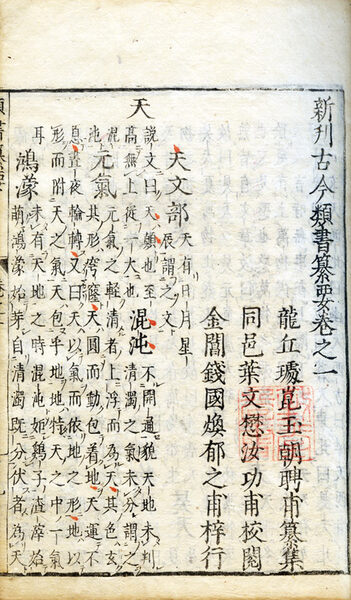 新刊古今類書纂要卷之一
龍丘璩崑玉朝聘甫纂集
同邑葉文懋汝功甫校閲
金閶錢國煥郁之甫梓行
天文部 天有日月星
辰謂之文
天
說文曰天顛也至
高無上從一大也
混沌 不開通貌天地未判
清濁之氣未分謂之
混
沌
元氣 元氣之輕清者上浮而為天其色玄
其形穹窿天圓而動包着地天運不
息晝夜輪轉又曰天以氣而依地之形地以
形而附天之氣天包乎地地特天之中一氣
耳
鴻濛 未有天地之時混沌如鷄子溟涬始
萌鴻濛始芽自清濁既分伏者為天